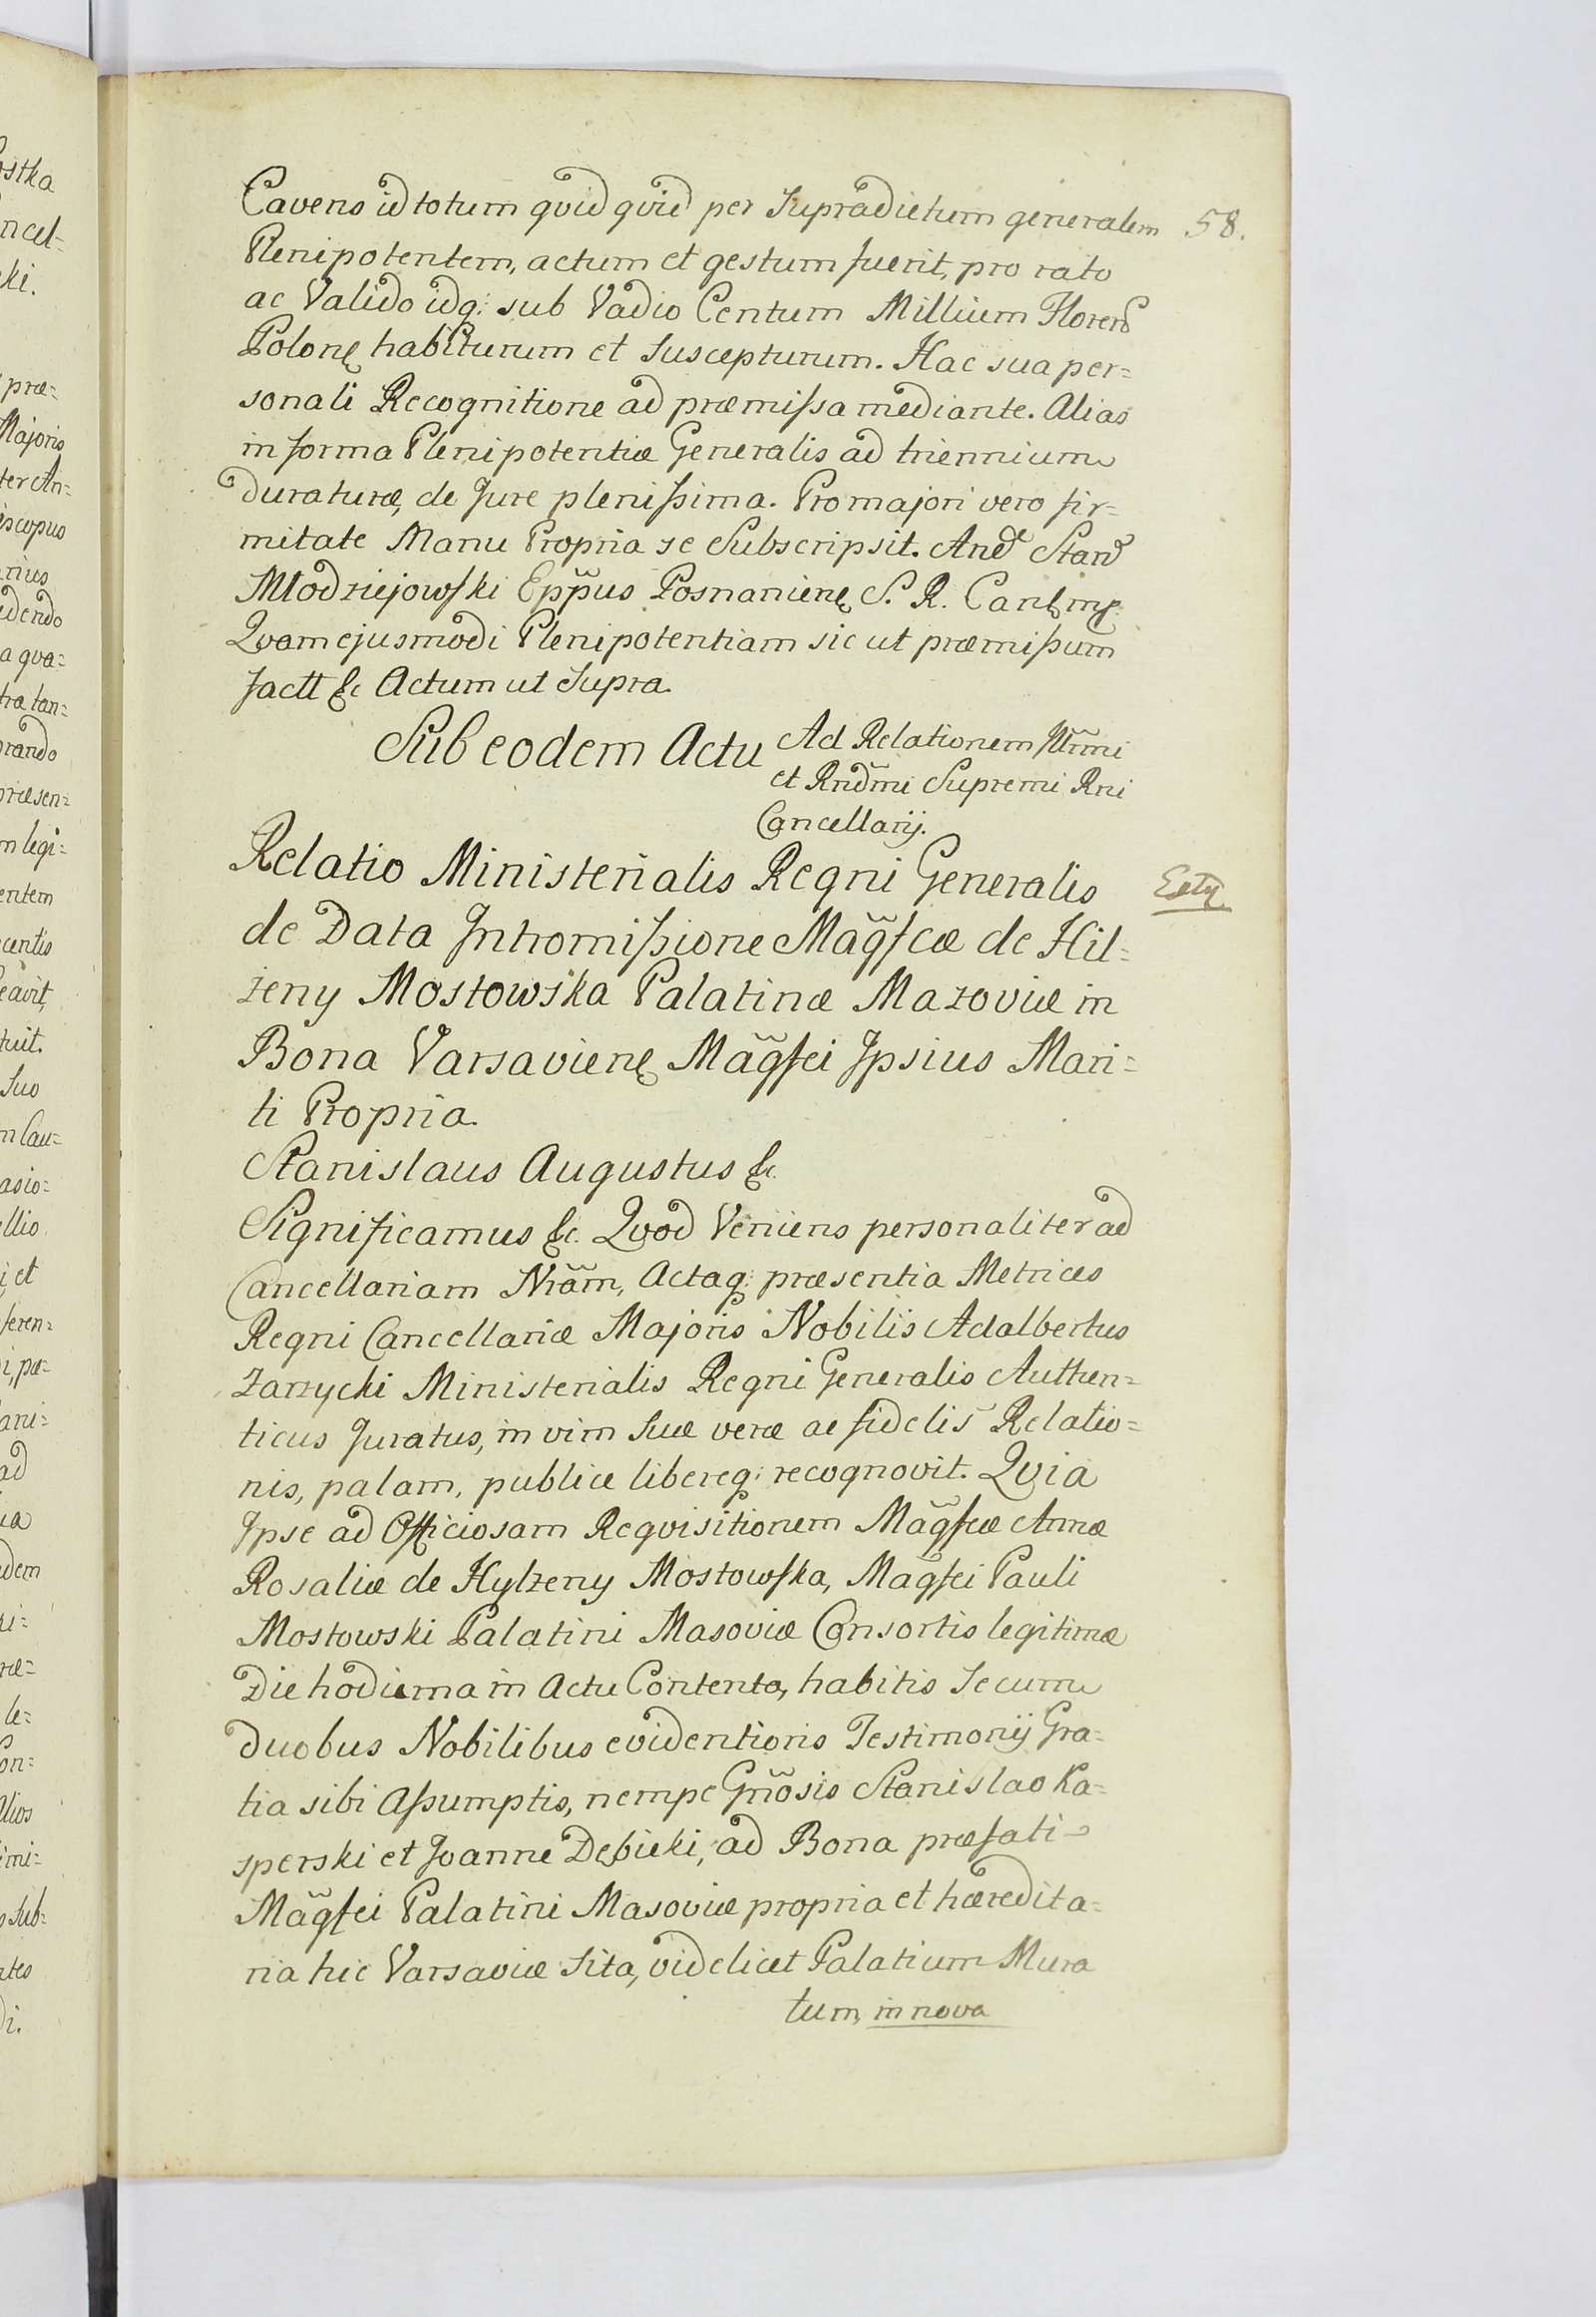 Cavens id totum qvid qvid per Supradictum generalem 58.
Plenipotentem, actum et gestum fuerit, pro rato
ac Valido idq: sub Vadio Centum Millium Floren
Polon habiturum et Suscepturum. Hac sua per=
sonali Recognitione ad præmissa mediante. Alias
in forma Plenipotentiæ Generalis ad triennium
duraturæ, de Jure plenissima. Pro majori vero fir=
mitate Manu Propria se Subscripsit. And Stan
Młodziejowski Epp̃us Posnanien S. R. Canc mp.
Qvam ejusmodi Plenipotentiam sic ut præmissum
factt &c Actum ut Supra.
Sub eodem Actu
Ad Relationem Illm̃i
et Rnd̃mi Supremi Rni
Cancellarij.
Relatio Ministerialis Regni Generalis
de Data Intromissione Mag̃fcæ de Hil=
zeny Mostowska Palatinæ Mazoviæ in
Bona Varsavien Mag̃fci Ipsius Mari=
ti Propria.
Stanislaus Augustus &c.
Significamus &c. Qvod Veniens personaliter ad
Cancellariam Nr̃am, Actaq: præsentia Metrices
Regni Cancellariæ Majoris Nobilis Adalbertus
Zarzycki Ministerialis Regni Generalis Authen=
ticus Juratus, in vim Suæ veræ ac fidelis Relatio=
nis, palam, publice libereq: recognovit. Qvia
Ipse ad Officiosam Reqvisitionem Mag̃fcæ Annæ
Rosaliæ de Hylzeny Mostowska, Mag̃fci Pauli
Mostowski Palatini Masoviæ Consortis legitimæ
Die hodierna in Actu Contenta, habitis Secum
duobus Nobilibus evidentioris Testimonij Gra=
tia sibi Assumptis, nempe Gñosis Stanislao Ka=
sperski et Joanne Dębicki, ad Bona præfati
Mag̃fci Palatini Masoviæ propria et hæredita=
ria hic Varsaviæ Sita, videlicet Palatium Mura
tum, in nova